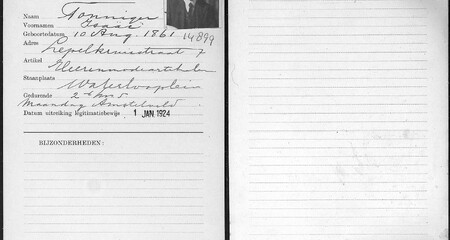 Naam Tonninge
Voornamen Isaäc
Geboortedatum 10 Aug. 1861 14899
Adres Lepelkruisstraat 7
Artikel Heerenmodeartikelen
Staanplaats Waterlooplein
Gedurende 2e
Maandag Amstelveld
Datum uitreiking legitimatiebewijs 1 JAN 1924
BIJZONDERHEDEN: